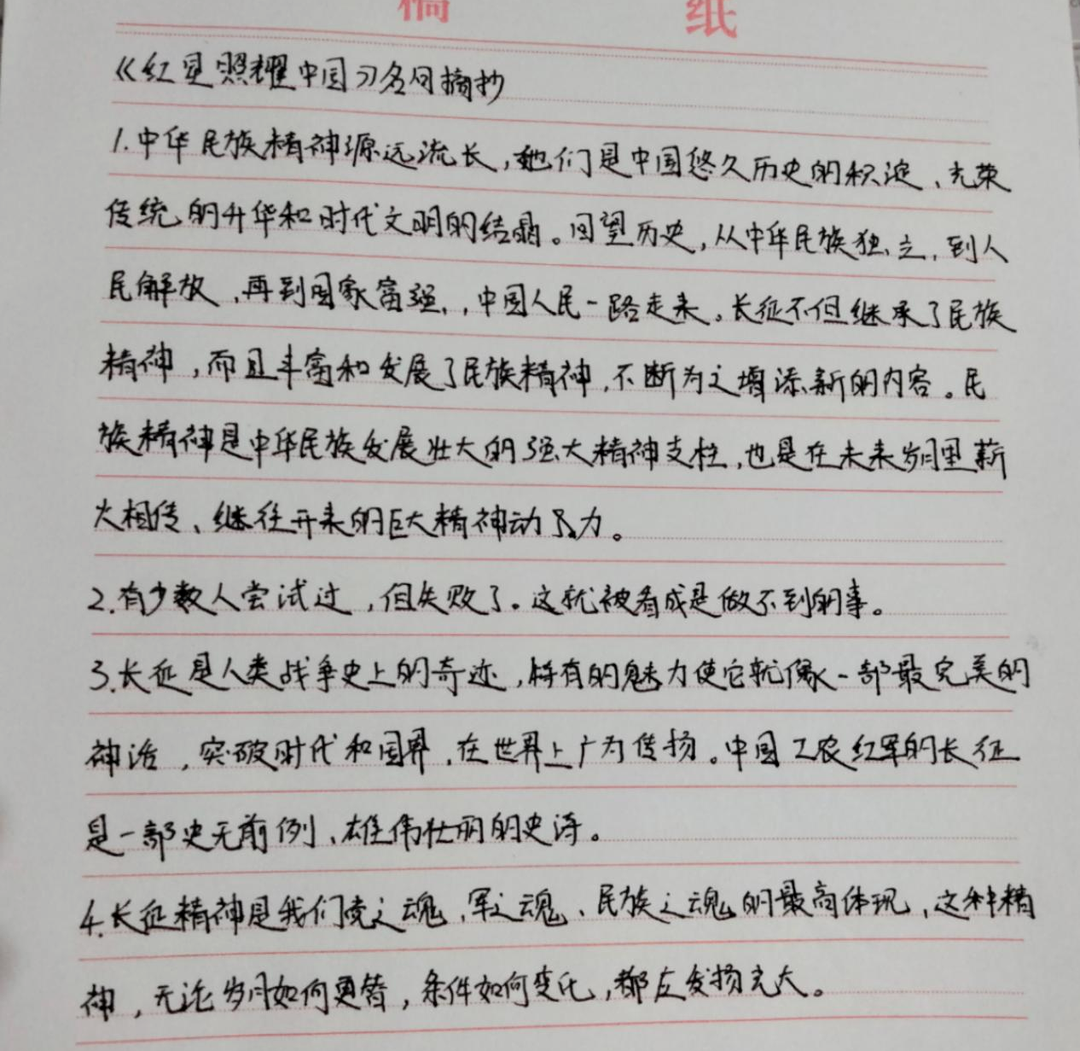 稿 纸
《红星照耀中国》名句摘抄
1.中华民族精神源远流长,她们是中国悠久历史的积淀、光荣
传统的升华和时代文明的结晶。回望历史,从中华民族独立,到人
民解放,再到国家富强,,中国人民一路走来。长征不但继承了民族
精神,而且丰富和发展了民族精神,不断为之增添新的内容。民
族精神是中华民族发展壮大的强大精神支柱,也是在未来岁月里薪
火相传、继往开来的巨大精神动力。
2.有少数人尝试过,但失败了。这就被看成是做不到的事。
3.长征是人类战争史上的奇迹,特有的魅力使它就像一部最完美的
神话,突破时代和国界,在世界上广为传扬。中国工农红军的长征
是一部史无前例、雄伟壮丽的史诗。
4.长征精神是我们党之魂、军之魂、民族之魂的最高体现,这种精
神,无论岁月如何更替,条件如何变化,都应发扬光大。